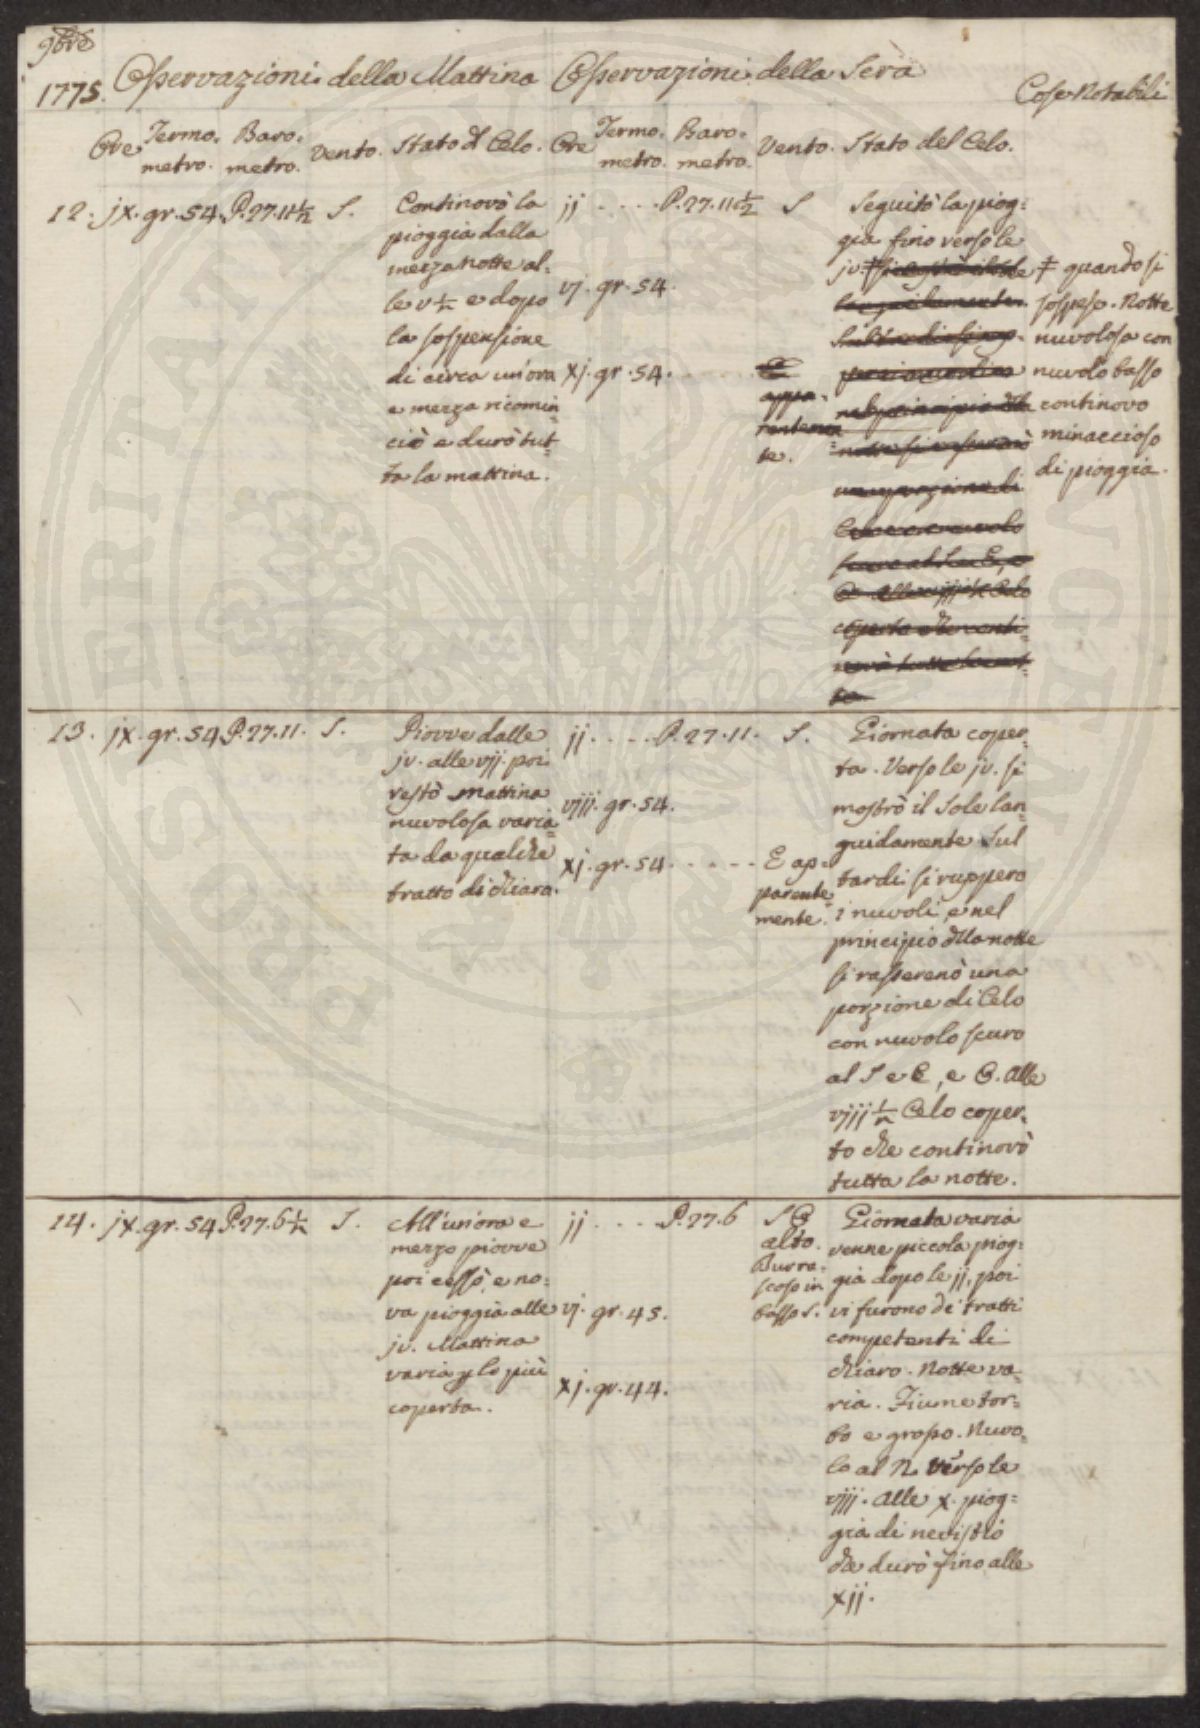 9bre
1775.
Osservazioni della Mattina
Osservazioni della Sera
Cose Notabili
Ore
Termo.
metro.
Baro.
metro.
Vento.
Stato dl Celo.
Ore
Termo.
metro.
Baro.
metro.
Vento.
Stato del Celo.
12. jx. gr. 54. P. 27. 11 1/2 S.
Continovò la
pioggia dalla
mezza notte al=
le v 1/2 e dopo
la sospensione
di circa un'ora
e mezza ricomin
ciò e durò tut=
ta la mattina.
jj .... P. 27. 11 1/2 S
vj. gr. 54.
xj. gr. 54. ......
appa=
rentemen
te.
Seguitò la piog=
gia fino verso le
jv. ‡
‡ quando si
sospese. Notte
nuvolosa con
nuvolo basso
continovo
minaccioso
di pioggia.
13. jx. gr. 54 P. 27. 11. S.
Piovve dalle
jv. alle vjj. poi
restò mattina
nuvolosa varia=
ta da qualche
tratto di chiaro.
jj .... P. 27. 11. S.
vjjj. gr. 54.
xj. gr. 54. ..... E ap=
parente=
mente.
Giornata coper=
ta. Verso le jv. si
mostrò il Sole lan=
guidamente Sul
tardi si ruppero
i nuvoli, e nel
principio dlla notte
si rasserenò una
porzione di Celo
con nuvolo scuro
al S e E, e O. Alle
vjjj 1/2 Celo coper=
to che continovò
tutta la notte.
14. jx. gr. 54 P. 27. 6 1/2 S.
All'un'ora e
mezzo piovve
poi cessò, e no=
va pioggia alle
jv. Mattina
varia p lo più
coperta.
jj .... P. 27. 6 S O
alto.
Burra=
scoso in
basso S.
vj. gr. 45.
xj. gr. 44.
Giornata varia
venne piccola piog=
gia dopo le jj. poi
vi furono de' tratti
competenti di
chiaro. Notte va=
ria. Fiume tor=
bo e grosso. Nuvo=
lo al N. verso le
vjjj. Alle x. piog=
gia di nevistio
che durò fino alle
xjj.